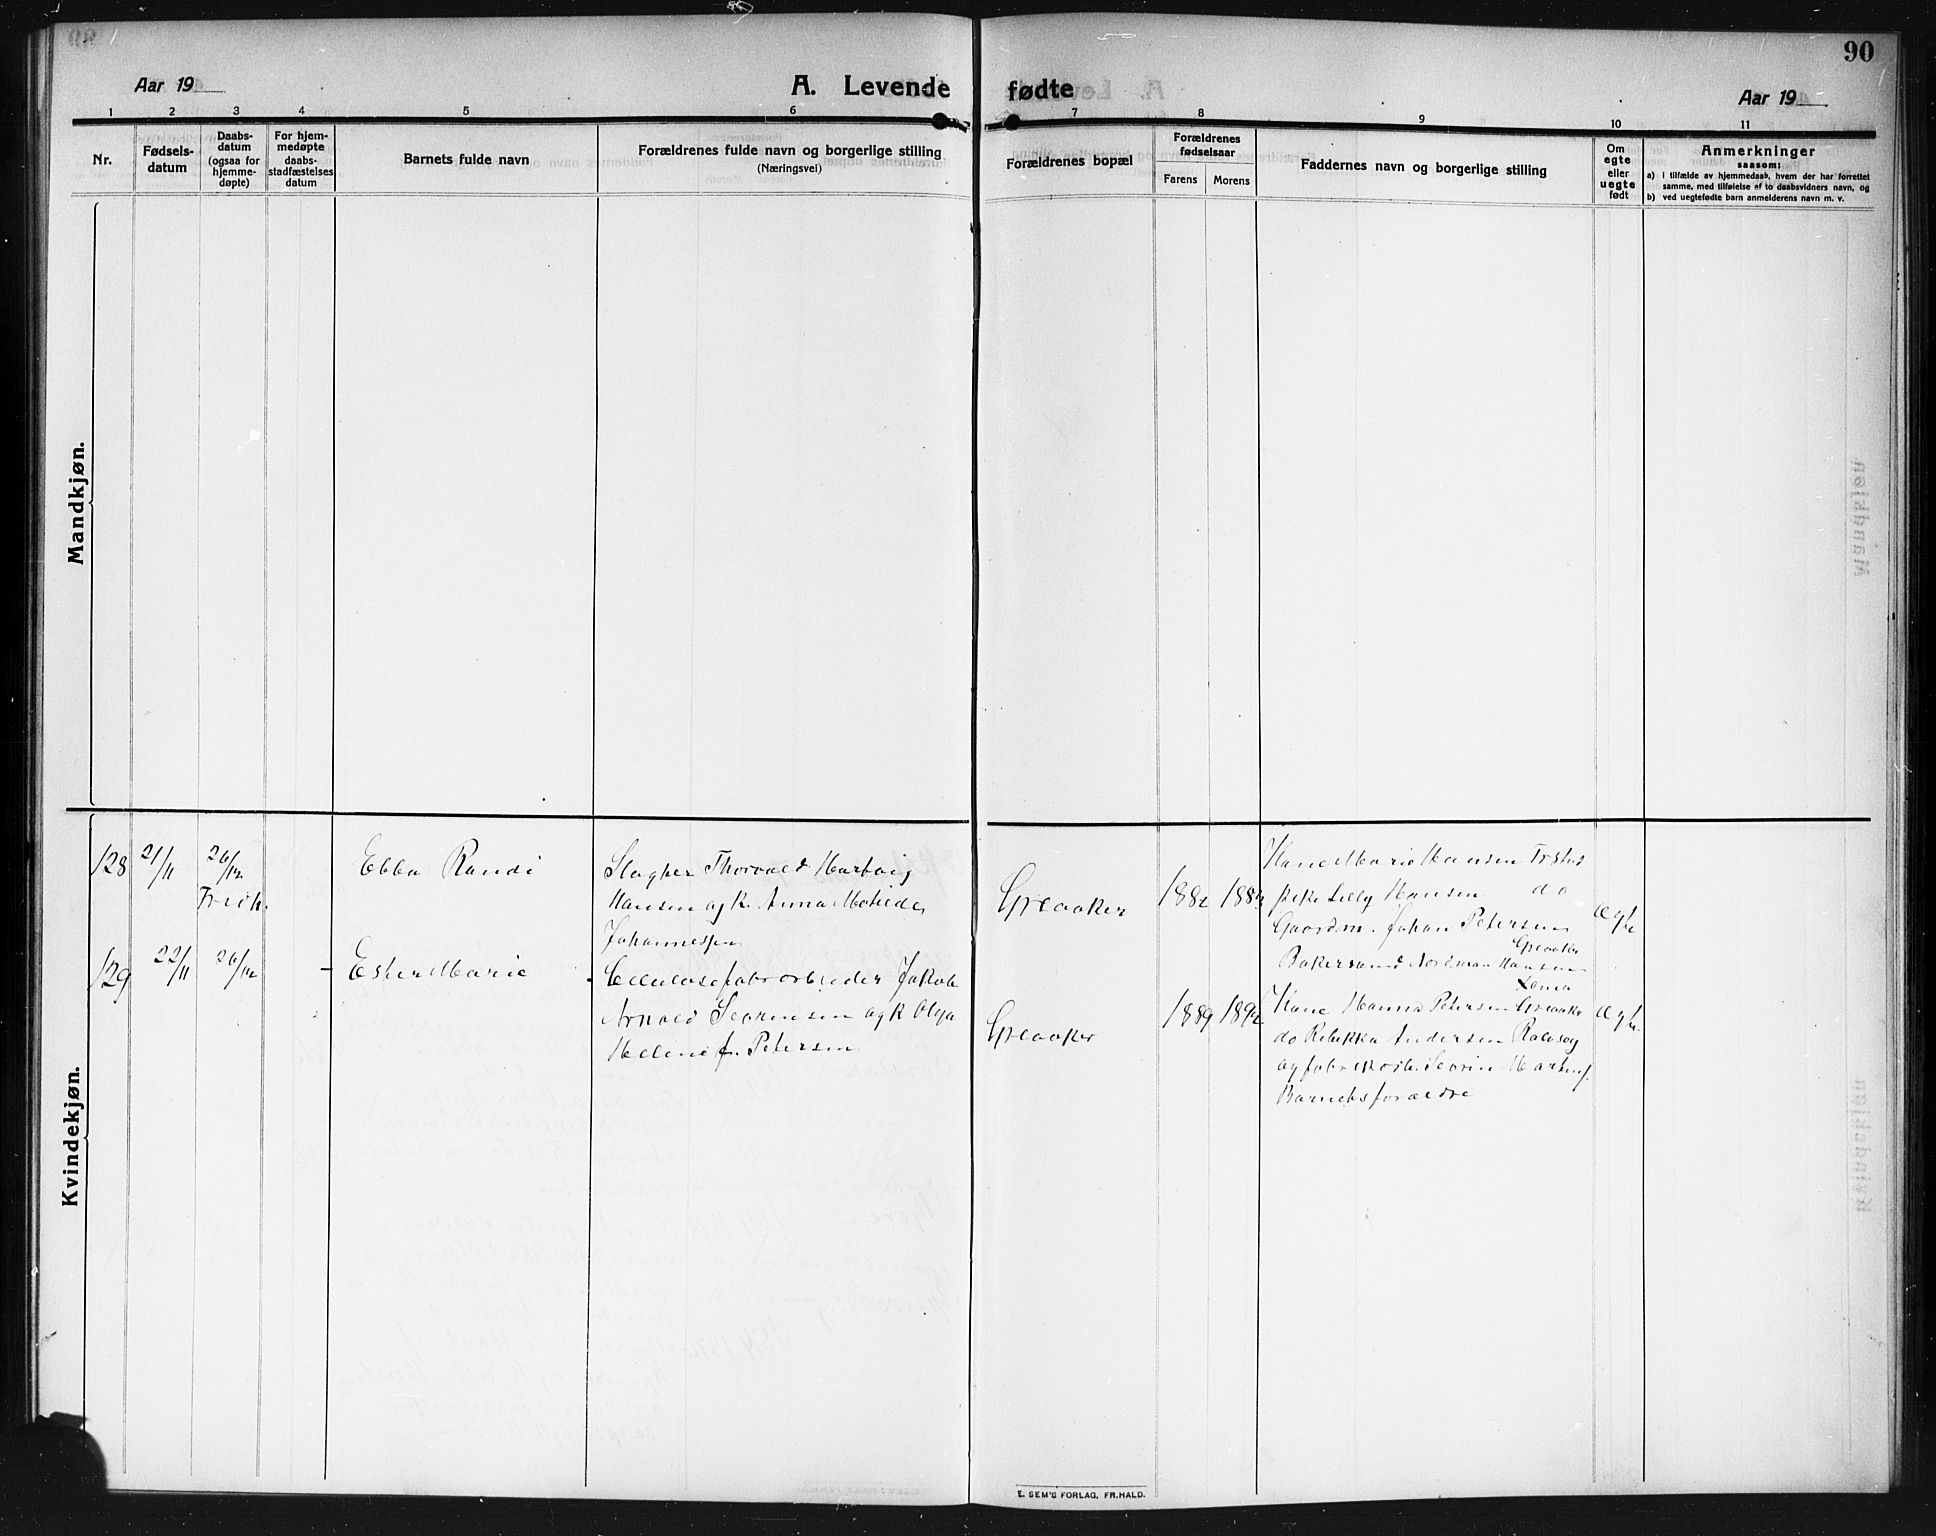 90
Aar 19
A. Levende fødte
Aar 19
1 2 3 4 5 6 7 8 9 10 11
Nr.
Fødsels-
datum
Daabs-
datum
(ogsaa for
hjemme-
døpte)
For hjem-
medøpte
daabs-
stadfæstelses
datum
Barnets fulde navn
Forældrenes fulde navn og borgerlige stilling
(Næringsvei)
Forældrenes bopæl
Forældrenes
fødselsaar
Farens Morens
Faddernes navn og borgerlige stilling
Om
egte
eller
uegte
født
Anmerkninger
saasom:
a) i tilfælde av hjemmedaab, hvem der har forrettet
samme, med tilføielse af to daabsvidners navn, og
b) ved uegtefødte barn anmelderens navn m. v.
Mandkjøn.
Kvindekjøn.
128 21/11 26/12 Ebba Randi
Slagter Thorvald Hartvig
Hansen og k. Anna Matilde
Johannessen
Greaaker 1882
Kone Marie Hansen
Lilly Hansen do
Gaardm. Johan Petersen
Greaaker
Nordman Hansen
129 22/11 26/12 - Ester Marie
Cellulosefabr.arbeider Jakob
Arnold Severinsen og k Olga
Helene f. Petersen
Greaaker 1889
Kone Hanna Petersen Greaaker
do Rebekka Andersen
og fabrikarb. Severin
Barnets forældre
E. SEM'S FORLAG, FR.HALD.